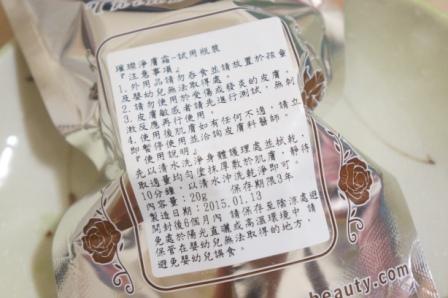 璀璨淨膚霜-試用瓶裝
『注意事項』
1.外用品請勿吞食並請放置於孩童
及嬰幼兒無法取得處。
2.請勿使用於受傷或發炎的皮膚。
3.皮膚敏感者請先進行測試,無刺
激反應再行使用。
4.使用後肌膚如有任何不適,請立
即暫停使用並洽詢皮膚科醫師。
『使用說明』
先以清水洗淨身體護理處並拭乾,
取適量均勻塗抹厚敷於肌膚,靜待
10分鐘,以清水沖洗乾淨即可。
內容量:20g 保存期限3年
製造日期:2015.01.13
開封後6個月內 請保存至陰涼處避
免處於陽光直曬或高溫環境中 請
保管在嬰幼兒無法取得的地方,
避免嬰幼兒誤食。
beauty.com